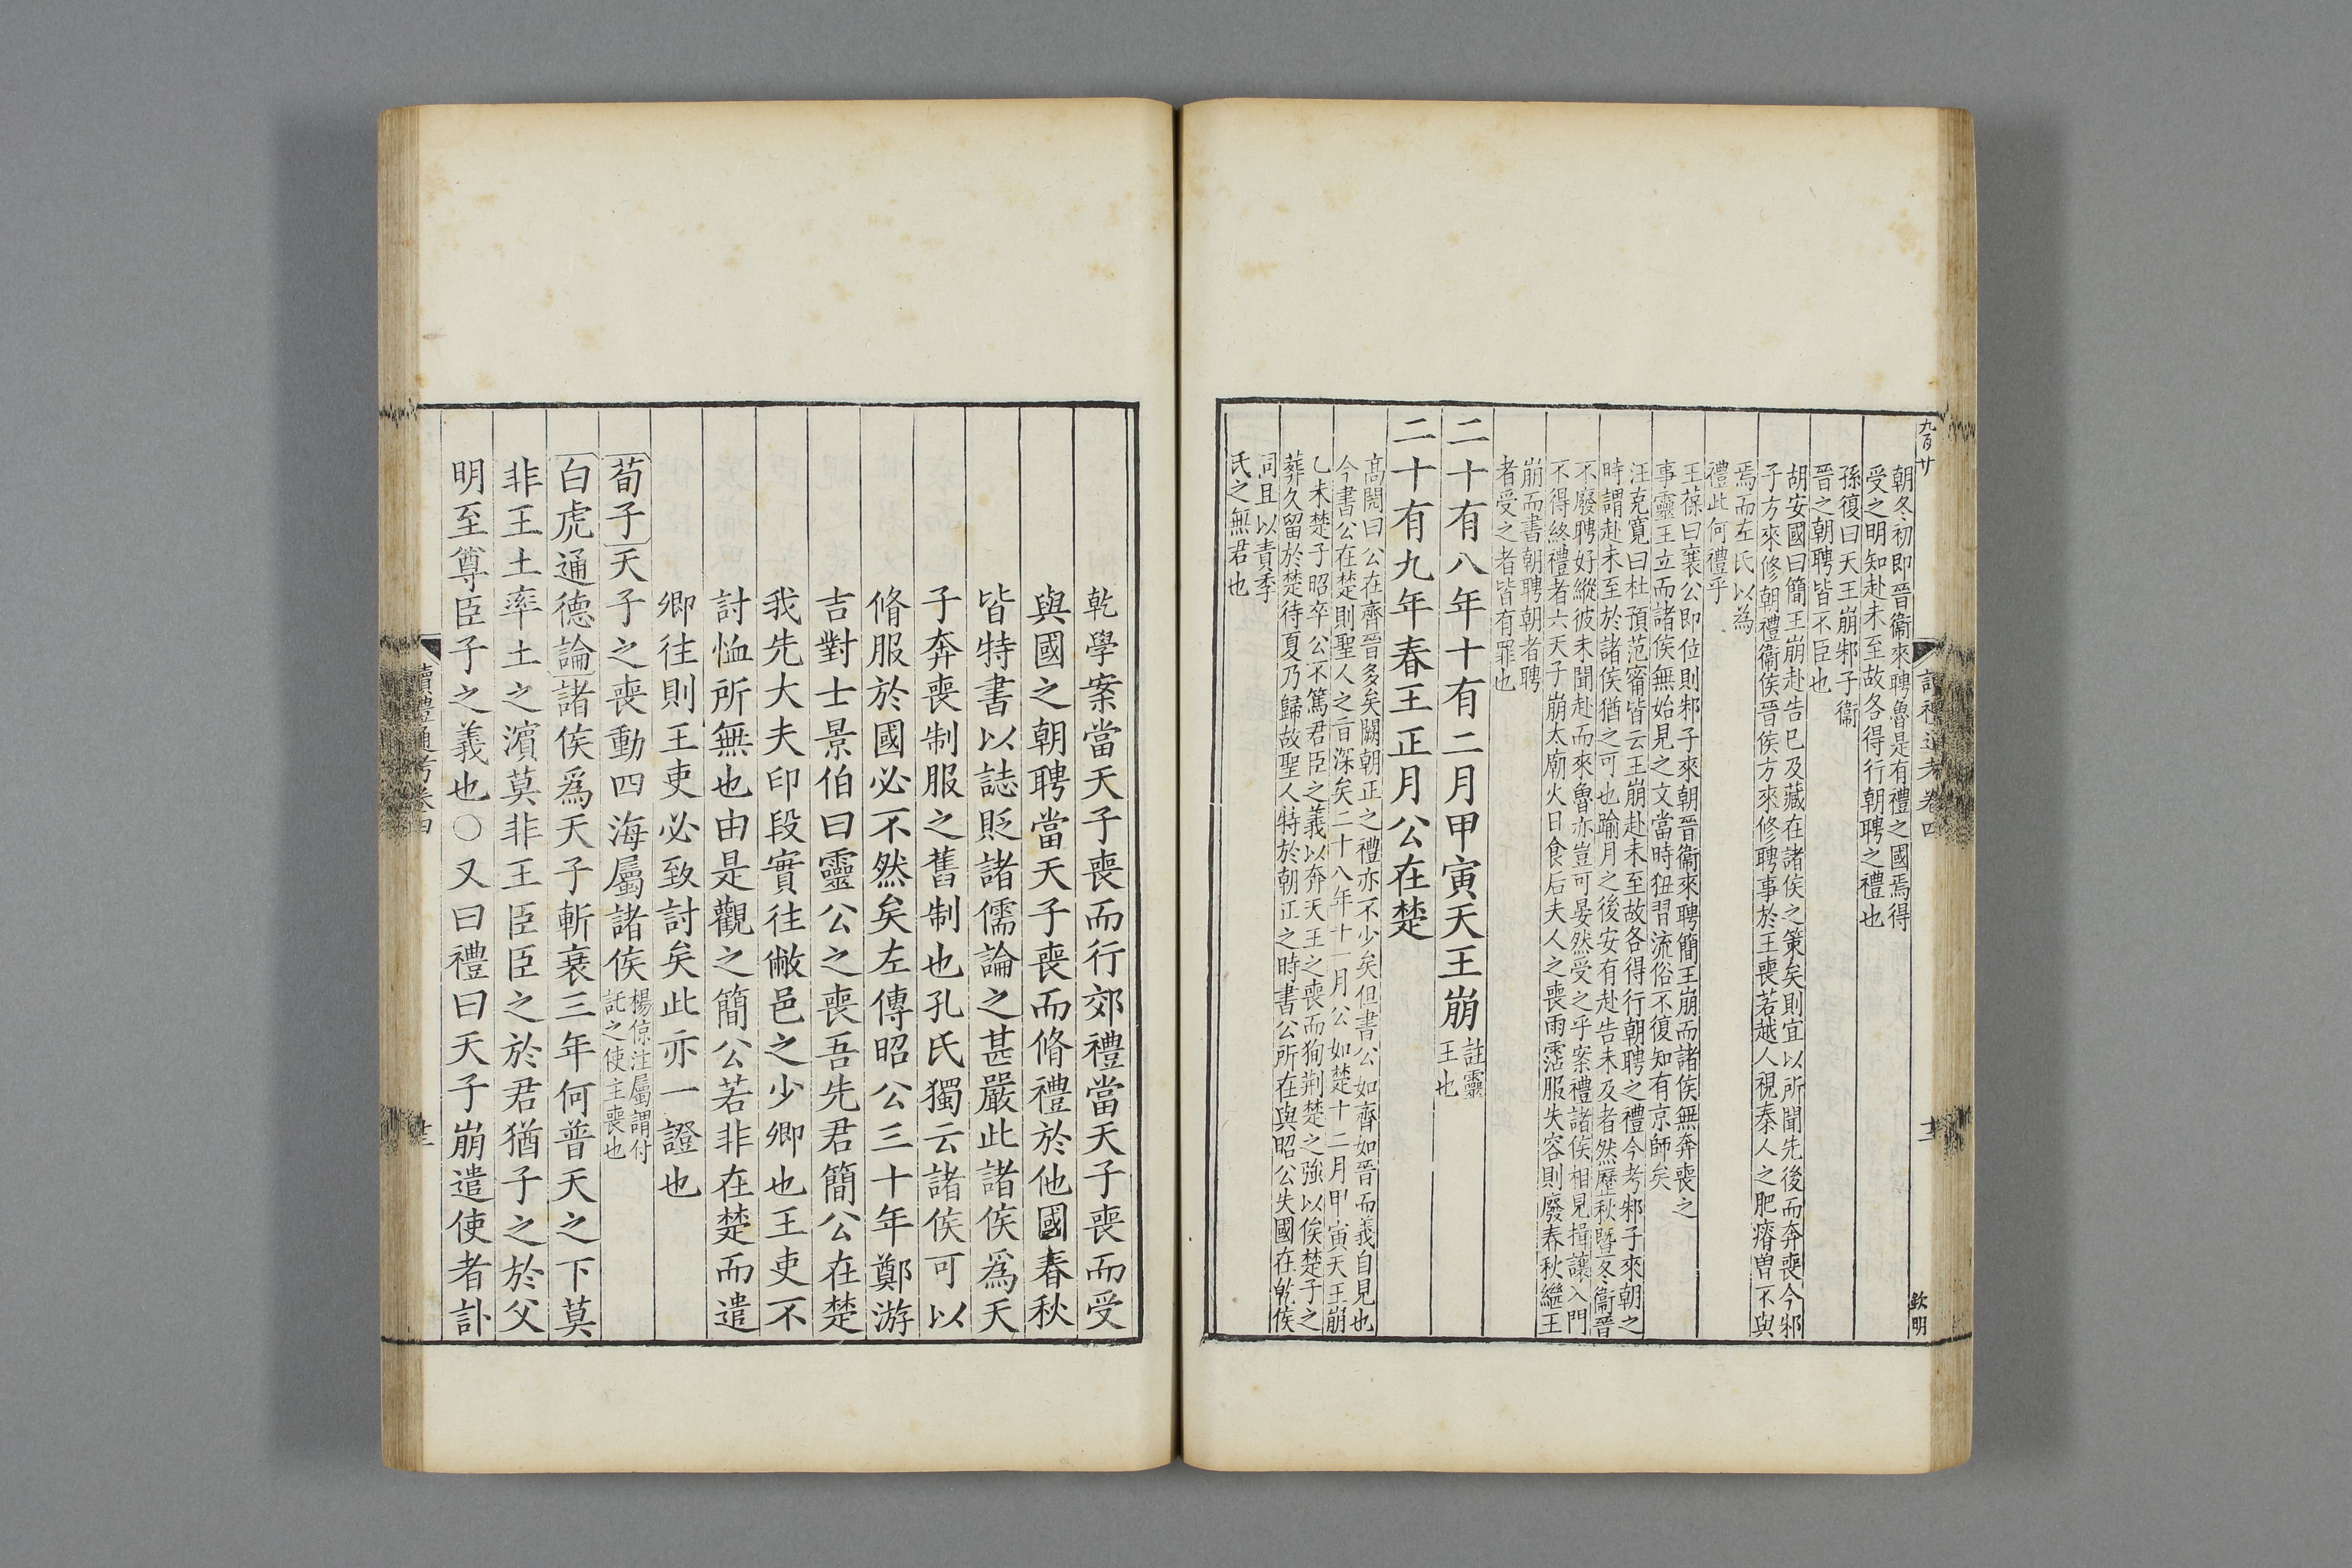 九百廿
讀禮通考卷四
十二
欽明
朝冬初即晉衞來聘魯是有禮之國焉得
受之明知赴未至故各得行朝聘之禮也
孫復曰天王崩邾子衞
晉之朝聘皆不臣也
胡安國曰簡王崩赴告巳及藏在諸侯之策矣則宜以所聞先後而奔喪今邾
子方來修朝禮衞侯晉侯方來修聘事於王喪若越人視秦人之肥瘠曽不與
焉而左氏以為
禮此何禮乎
王葆曰襄公即位則邾子來朝晉衞來聘簡王崩而諸侯無奔喪之
事靈王立而諸侯無始見之文當時狃習流俗不復知有京師矣
汪克寬曰杜預范甯皆云王崩赴未至故各得行朝聘之禮今考邾子來朝之
時謂赴未至於諸侯猶之可也踰月之後安有赴告未及者然歷秋暨冬衞晉
不廢聘好縱彼未聞赴而來魯亦豈可晏然受之乎案禮諸侯相見揖讓入門
不得終禮者六天子崩太廟火日食后夫人之喪雨霑服失容則廢春秋繼王
崩而書朝聘朝者聘
者受之者皆有罪也
二十有八年十有二月甲寅天王崩註靈
王也
二十有九年春王正月公在楚
高閌曰公在齊晉多矣闕朝正之禮亦不少矣但書公如齊如晉而義自見也
今書公在楚則聖人之㫖深矣二十八年十一月公如楚十二月甲寅天王崩
乙未楚子昭卒公不篤君臣之義以奔天王之喪而狥荆楚之強以俟楚子之
葬久留於楚待夏乃歸故聖人特於朝正之時書公所在與昭公失國在乾侯
同且以責季
氏之無君也
乾學案當天子喪而行郊禮當天子喪而受
與國之朝聘當天子喪而脩禮於他國春秋
皆特書以誌貶諸儒論之甚嚴此諸侯爲天
子奔喪制服之舊制也孔氏獨云諸侯可以
脩服於國必不然矣左傳昭公三十年鄭游
吉對士景伯曰靈公之喪吾先君簡公在楚
我先大夫印段實往敝邑之少卿也王吏不
討恤所無也由是觀之簡公若非在楚而遣
卿往則王吏必致討矣此亦一證也
荀子天子之喪動四海屬諸侯楊倞注屬謂付
託之使主喪也
白虎通德論諸侯爲天子斬衰三年何普天之下莫
非王土率土之濱莫非王臣臣之於君猶子之於父
明至尊臣子之義也〇又曰禮曰天子崩遣使者訃
讀禮通考卷四